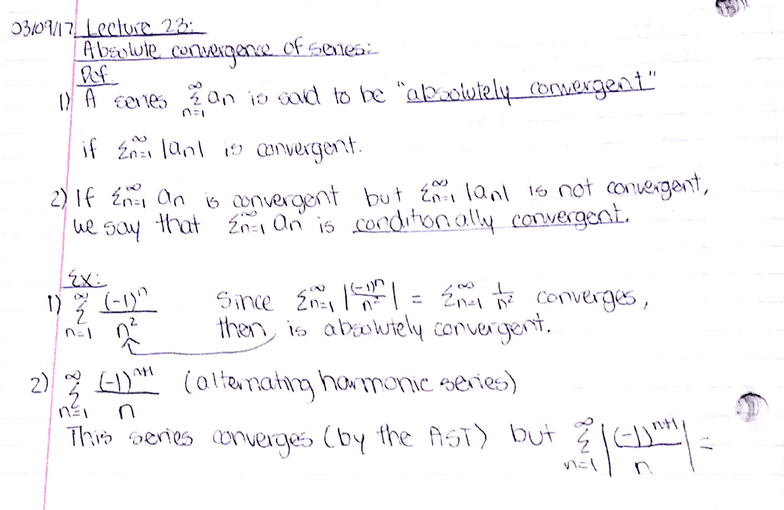 03/09/17 Lecture 23:
Absolute convergence of series:
Def.
1) A series ∞Σn=1 an is said to be "absolutely convergent"
if Σn=1∞ |an| is convergent.
2) If Σn=1∞ an is convergent but Σn=1∞ |an| is not convergent,
we say that Σn=1∞ an is conditionally convergent.
Ex:
1) ∞Σn=1 (-1)^n/n^2 Since Σn=1∞ |(-1)^n/n^2| = Σn=1∞ 1/n^2 converges,
then, is absolutely convergent.
2) ∞Σn=1 (-1)^n+1/n (alternating harmonic series)
This series converges (by the AST) but ∞Σn=1 |(-1)^n+1/n| =